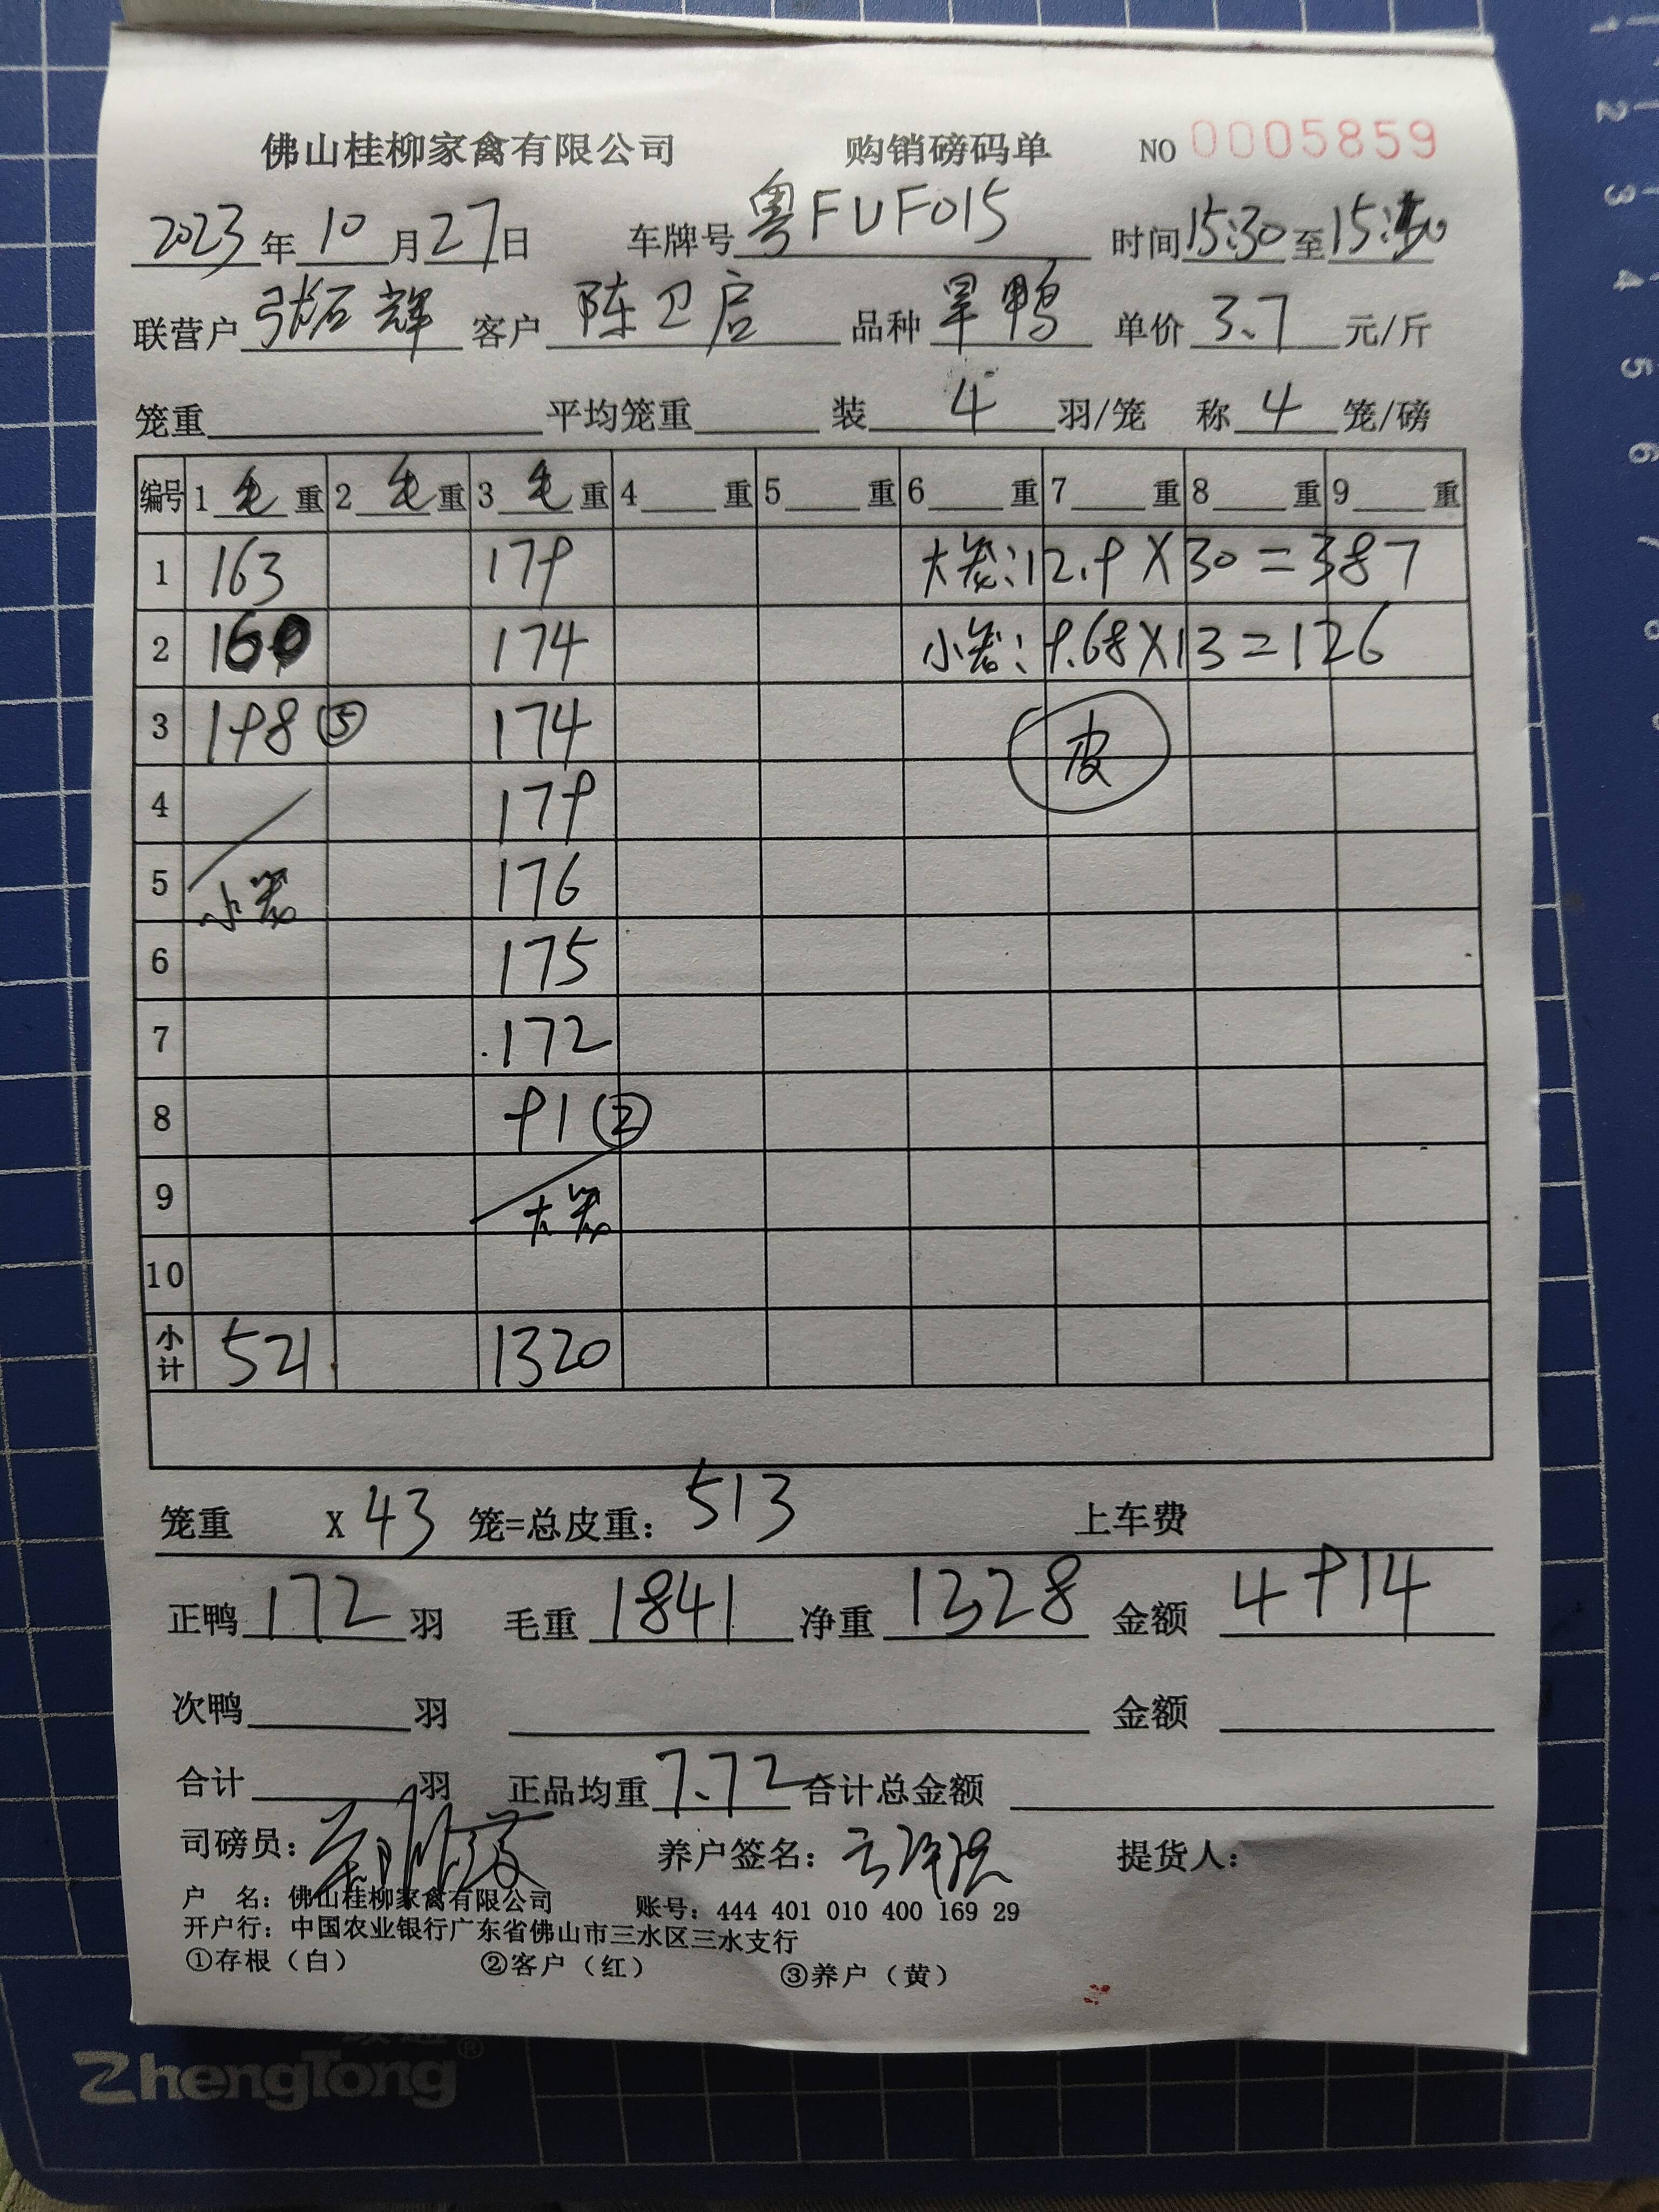 佛山桂柳家禽有限公司 购销磅码单 NO 0005859
2023年10月27日 车牌号粤FUF015 时间15:30至15:50
联营户张石辉 客户陈卫启 品种旱鸭 单价3.7元/斤
笼重 平均笼重 装4羽/笼 称4笼/磅
编号 1毛重 2毛重 3毛重 4重 5重 6重 7重 8重 9重
1 163 179 大笼:12.9×30=387
2 160 174 小笼:9.68×13=126
3 198⑤ 174 皮
4 179
5 小笼 176
6 175
7 172
8 91②
9 大笼
10
小计 521 1320
笼重 x43 笼=总皮重:513 上车费
正鸭172羽 毛重1841 净重1328 金额4914
次鸭 羽 金额
合计 羽 正品均重7.72合计总金额
司磅员: 养户签名: 提货人:
户 名:佛山桂柳家禽有限公司 账号:444 401 010 400 169 29
开户行:中国农业银行广东省佛山市三水区三水支行
①存根(白) ②客户(红) ③养户(黄)
ZhengTong®
1
2
3
4
5
6
7
8